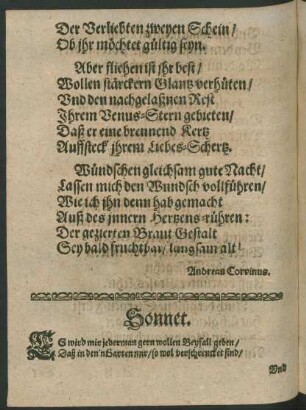 Der Verliebten zweyen Schein/
Ob jhr möchtet gültig seyn.
Aber fliehen ist jhr best/
Wollen stärckern Glantz verhüten/
Vnd den nachgelaßnen Rest
Ihrem Venus-Stern gebieten/
Daß er eine brennend Kertz
Auffsteck jhrem Liebes-Schertz.
Wündschen gleichsam gute Nacht/
Lassen mich den Wundsch vollführen/
Wie ich jhn denn hab gemacht
Auß des jnnern Hertzens-rühren:
Der gezierten Braut Gestalt
Sey bald fruchtbar/ langsam alt!
Andreas Corvinus.
Sonnet.
ES wird mir jederman gern wollen Beyfall geben/
Daß in den'n Garten nur/ so wol verschrencket sind/
Vnd